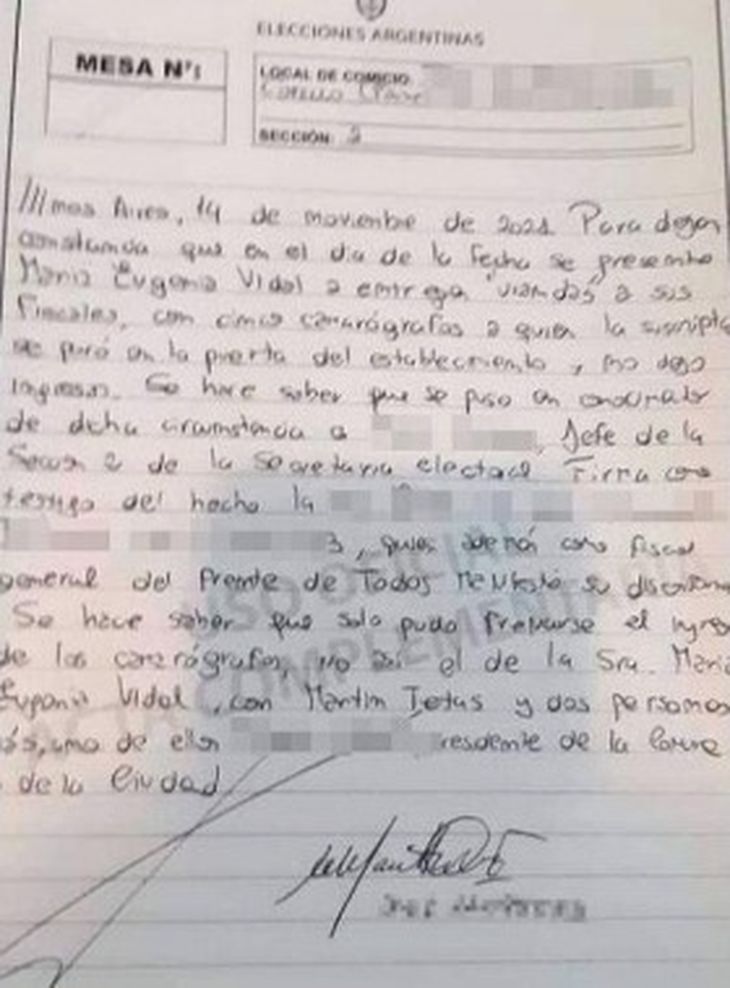 ELECCIONES ARGENTINAS
MESA Nº:
LOCAL DE COMICIO
SECCIÓN: 2
Aires, 14 de noviembre de 2021 Para dejar
constancia que en el dia de la fecha se presento
Maria Eugenia Vidal a entregar "viandas" a sus
Fiscales, con cinco camarógrafos a quien la suscripta
se paró en la puerta del establecimiento y no dejo
ingresar. Se hace saber que se puso en
de dicha circunstancia a Jefe de la
2 de la Secretaria electoral Firma como
testigo del hecho la
3, quien además como fiscal
general del Frente de Todos su
Se hace saber que solo pudo frenarse el
de los camarógrafos, no así el de la Sra. Maria
Eugenia Vidal, con Martin y dos personas
más, una de ellas residente de la Corte
de la Ciudad
USO OFICIAL
ACTA COMPLEMENTARIA